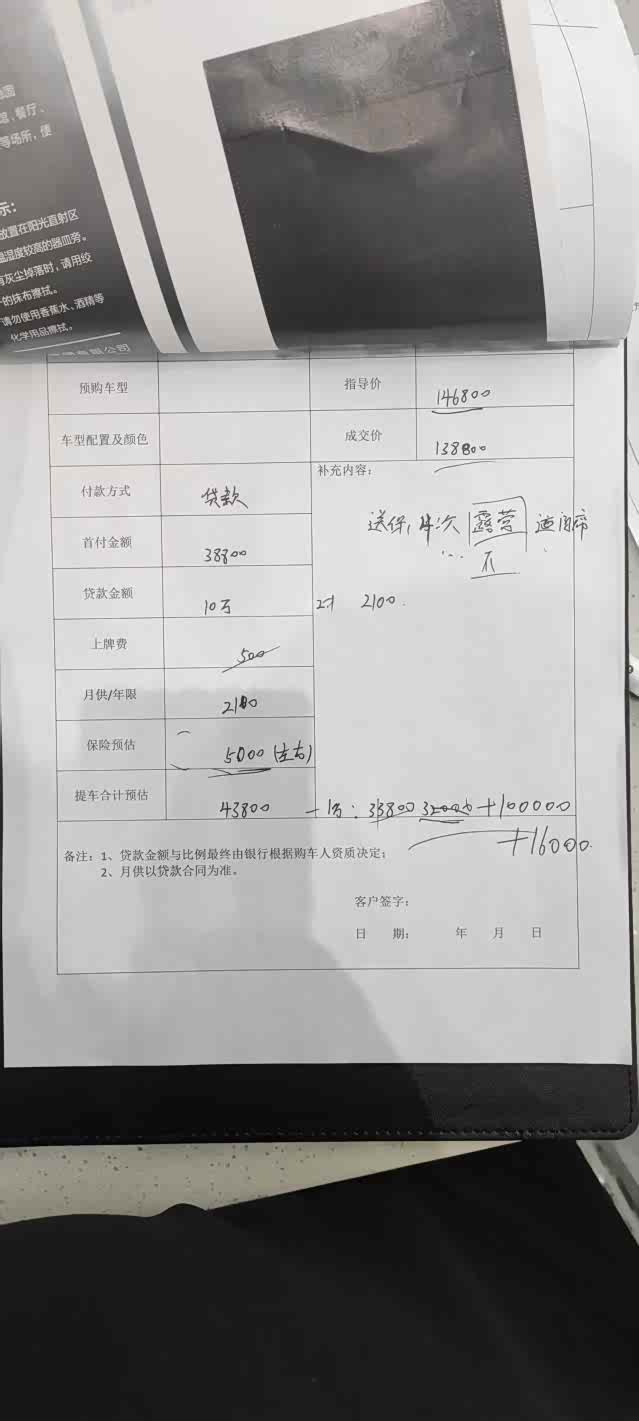 馆、餐厅、
等场所，使
示：
放置在阳光直射区
温湿度较高的器皿旁。
有灰尘掉落时，请用绞
干的抹布擦拭。
请勿使用香蕉水、酒精等
化学用品擦拭。
有限公司
预购车型 指导价 146800
车型配置及颜色 成交价 138800
付款方式 贷款 补充内容：
送保, 露营
不
首付金额 38800
贷款金额 10万 2100.
上牌费 500
月供/年限 2100
保险预估 5000 (左右)
提车合计预估 43800 -1万: 33800 32000 +100000
+16000.
备注：1、贷款金额与比例最终由银行根据购车人资质决定；
2、月供以贷款合同为准。
客户签字：
日 期： 年 月 日